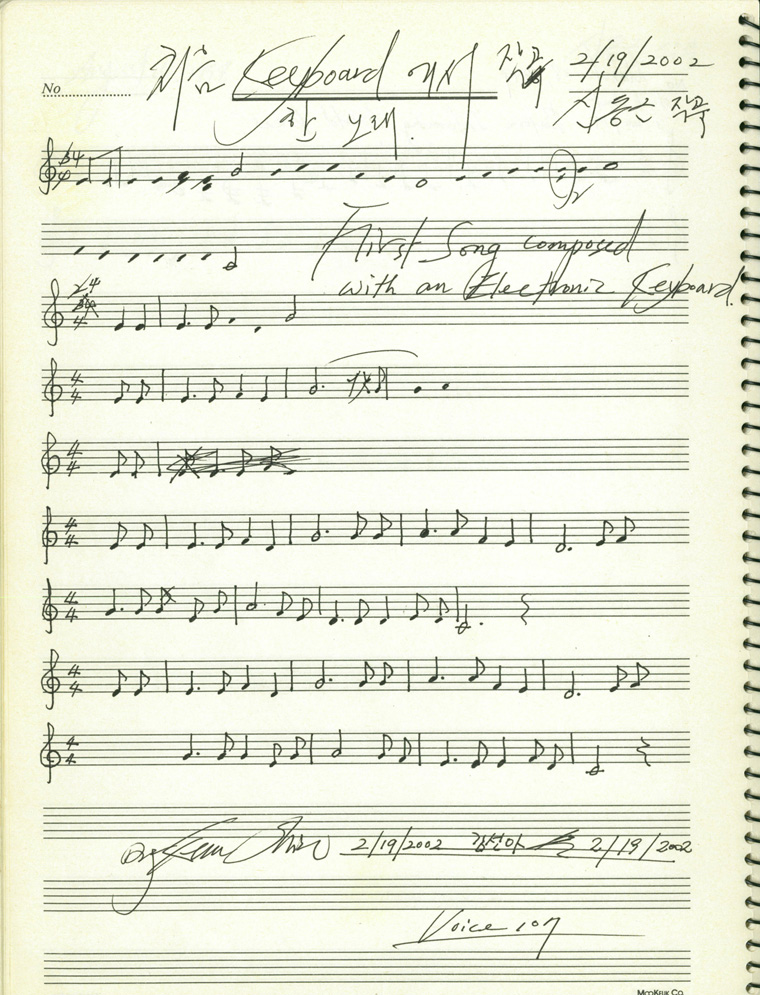 No
처음 Keyboard 에서 작곡 2/19/2002
한 노래 신동근 작곡
First Song composed
with an Electronic Keyboard.
4
4
4
4
4
4
4
4
4
4
4
4
4
4
2/19/2002 2/19/2002
Voice 107
MooKeuk Co.